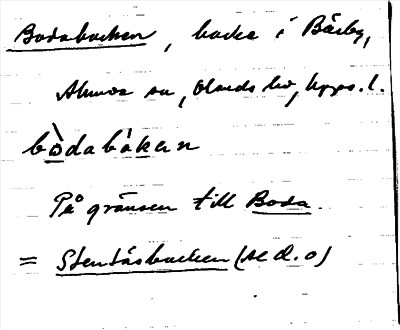 Bodabacken, backe i Bärby,
Almunge sn, Olands hd, Upps. l.
bòdabàkan
På gränsen till Boda.
= Stentäsbacken (se d. o)